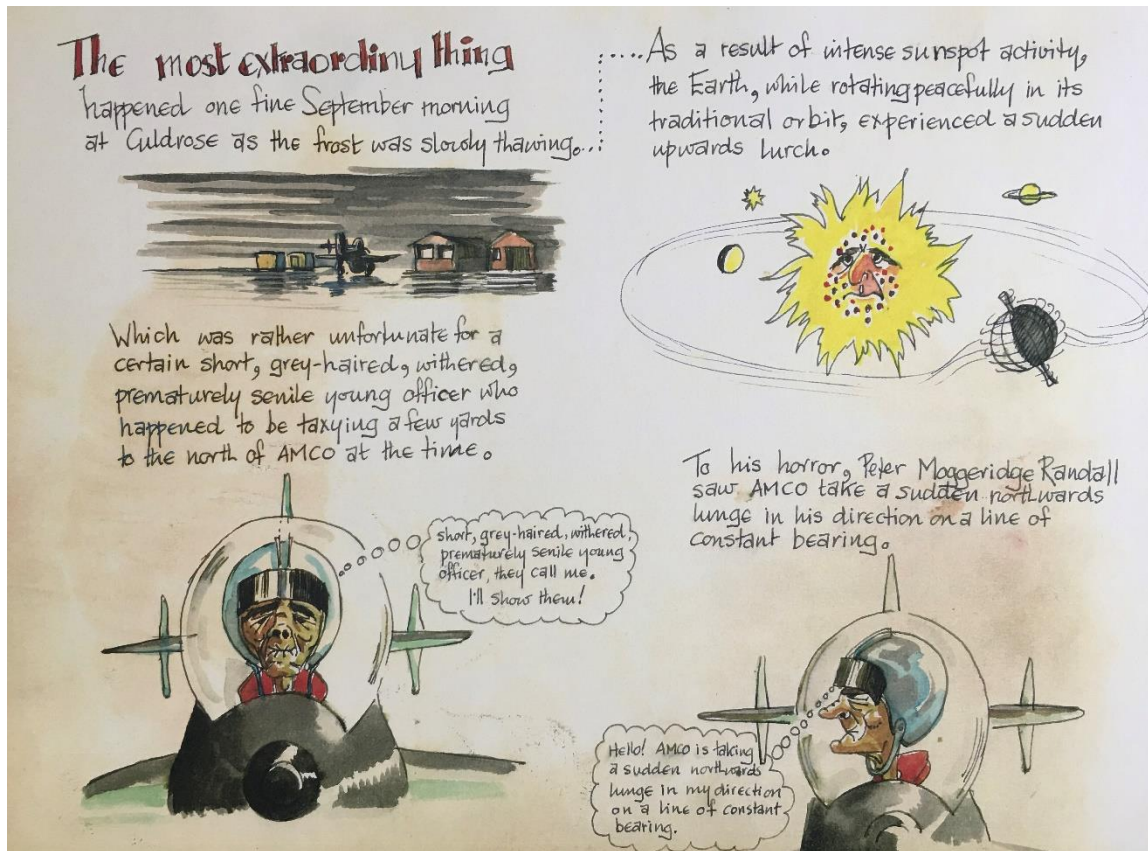 The most extraordiny thing
happened one fine September morning
at Culdrose as the frost was slowly thawing....
....As a result of intense sunspot activity,
the Earth, while rotating peacefully in its
traditional orbit, experienced a sudden
upwards lurch.
Which was rather unfortunate for a
certain short, grey-haired, withered,
prematurely senile young officer who
happened to be taxying a few yards
to the north of AMCO at the time.
short, grey-haired, withered,
prematurely senile young
officer, they call me.
I'll show them!
To his horror, Peter Moggeridge Randall
saw AMCO take a sudden northwards
lunge in his direction on a line of
constant bearing.
Hello! AMCO is taking
a sudden northwards
lunge in my direction
on a line of constant
bearing.